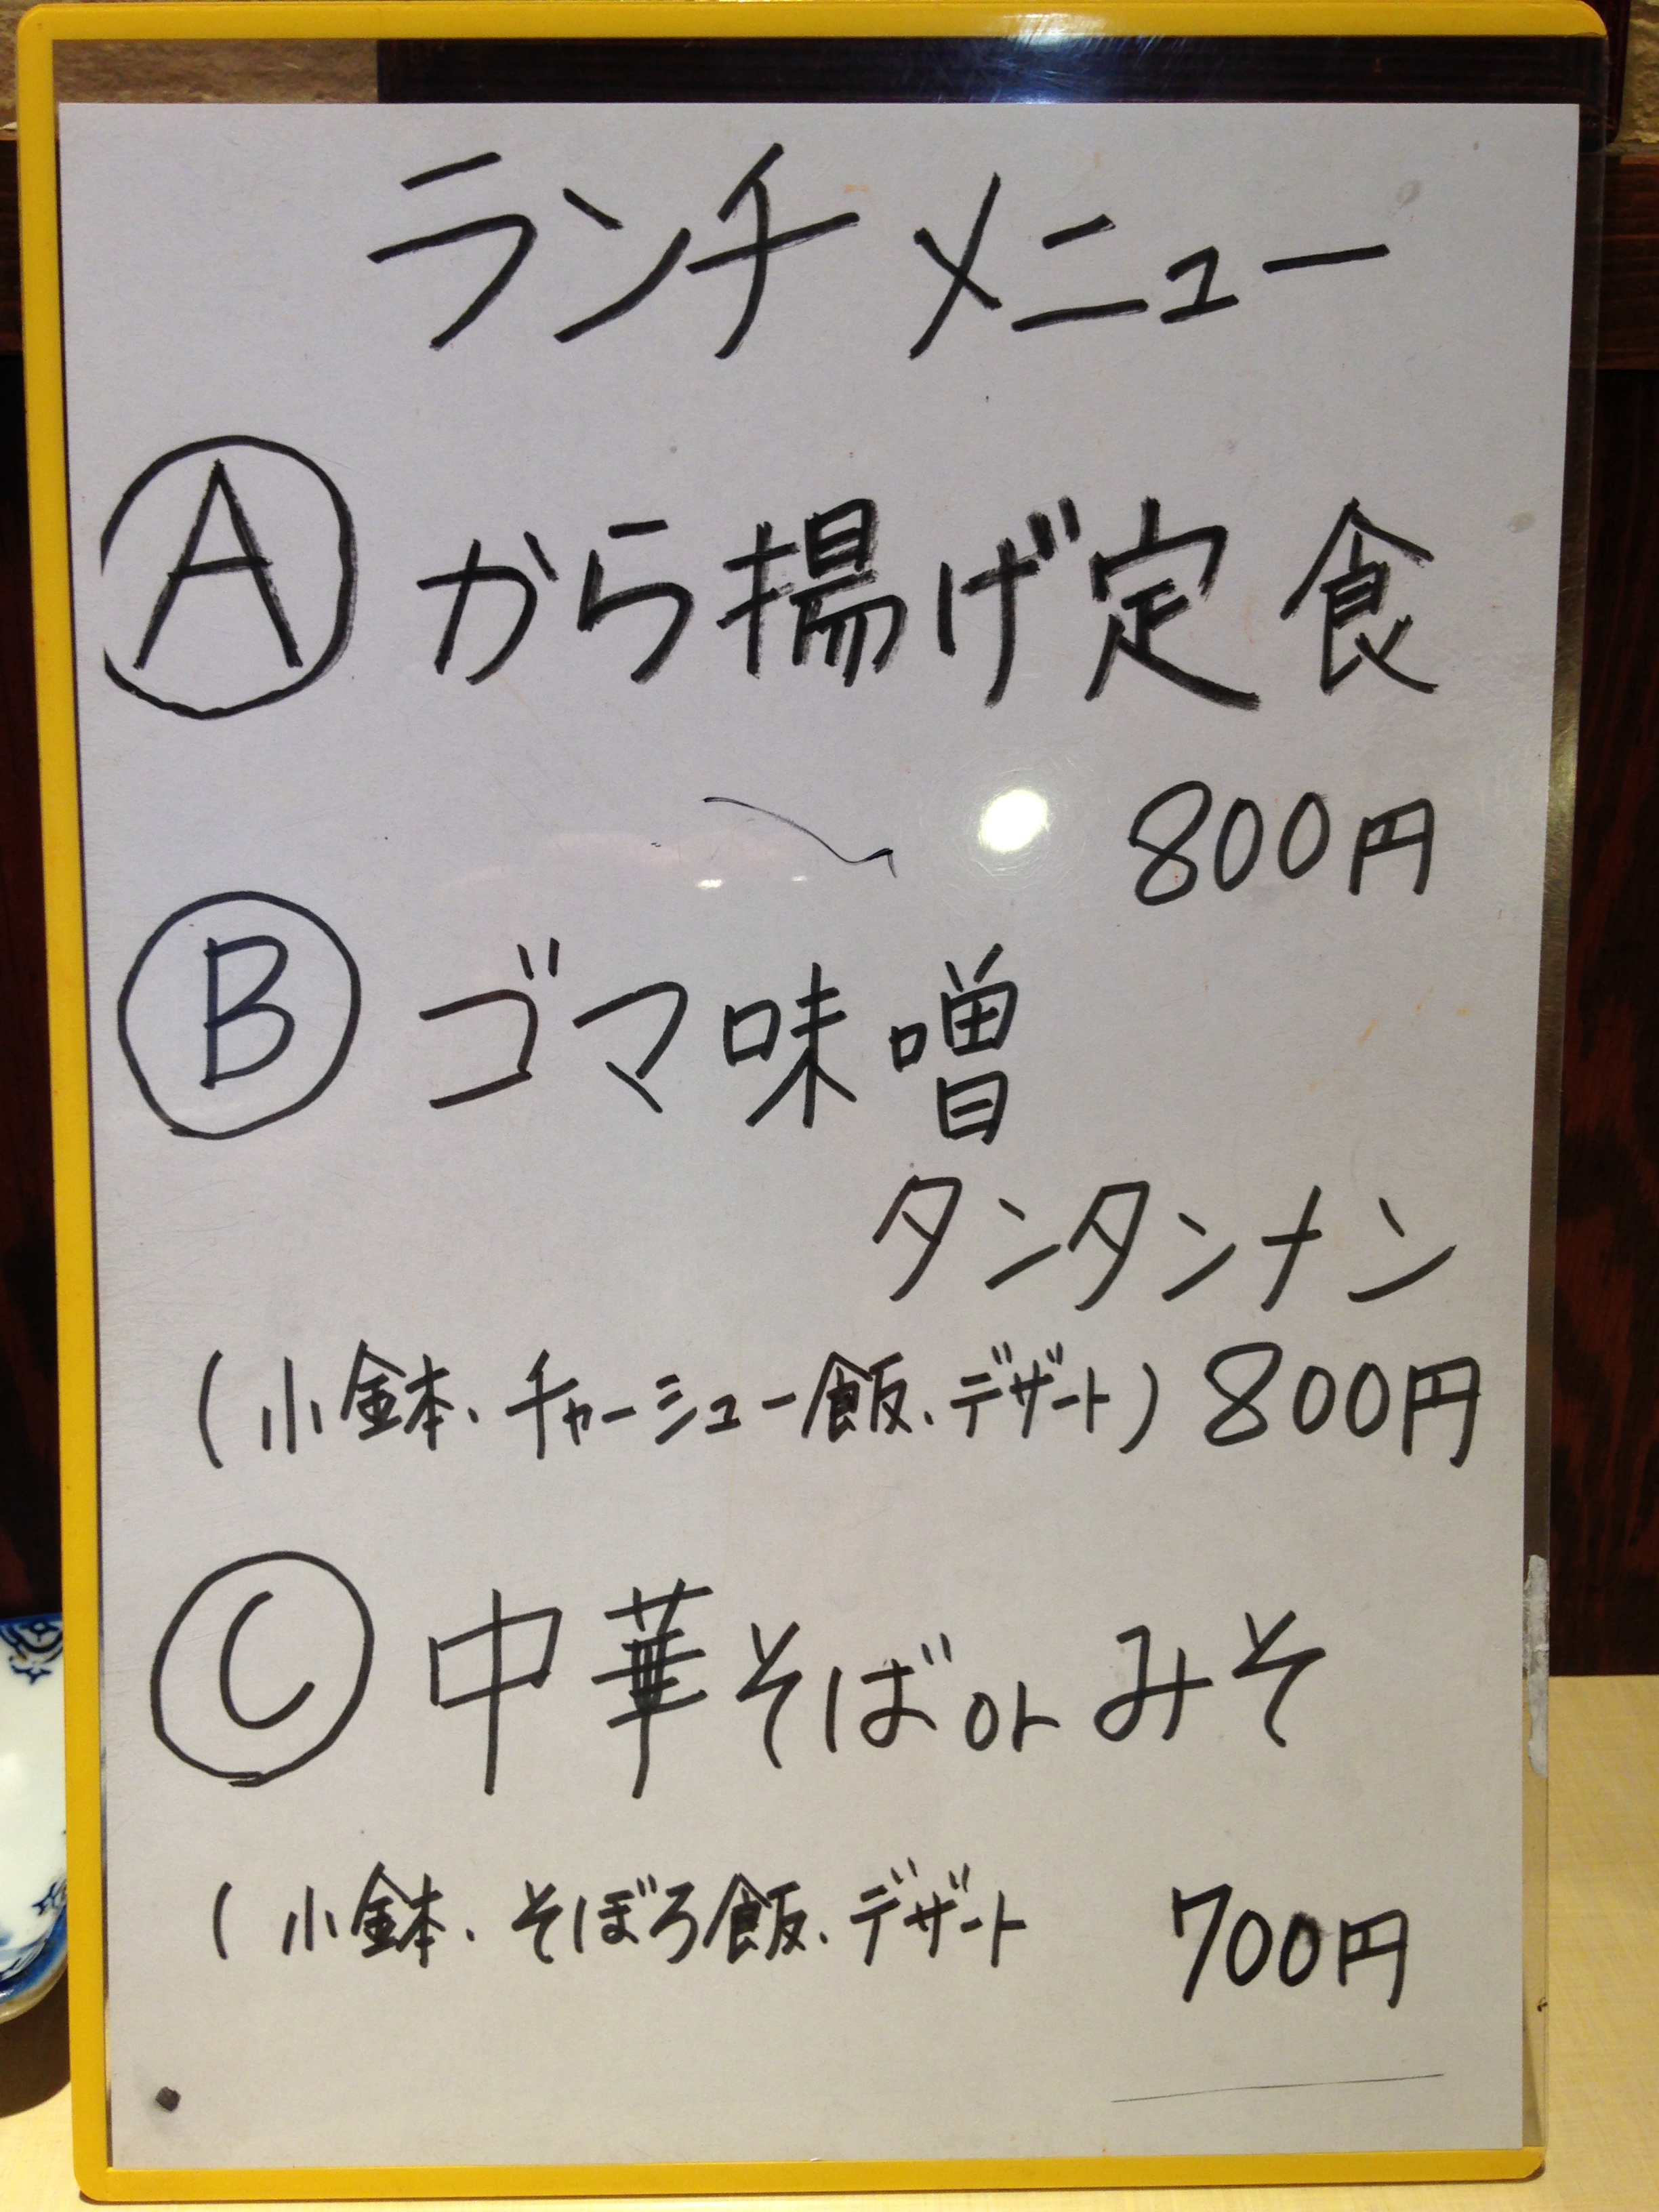 ランチメニュー
Ⓐ から揚げ定食
800円
Ⓑ ゴマ味噌
タンタンナン
(小鉢、チャーシュー飯、デザート) 800円
Ⓒ 中華そば or みそ
(小鉢、そぼろ飯、デザート 700円